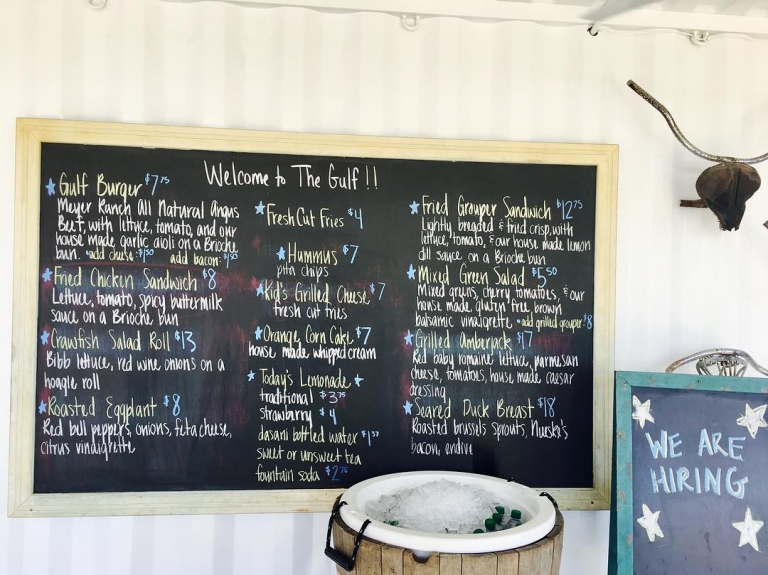 Welcome to The Gulf !!
Gulf Burger $7.75
Meyer Ranch All Natural Angus
Beef, with lettuce, tomato, and our
house made garlic aioli on a Brioche
bun. *add cheese: $1.50 add bacon: $1.50
Fried Chicken Sandwich $8
Lettuce, tomato, spicy buttermilk
sauce on a Brioche bun
Crawfish Salad Roll $13
Bibb lettuce, red wine onions on a
hoagie roll
Roasted Eggplant $8
Red bull peppers, onions, feta cheese,
citrus vinaigrette
Fresh Cut Fries $4
Hummus $7
pita chips
Kid's Grilled Cheese $7
fresh cut fries
Orange Corn Cake $7
house made whipped cream
Today's Lemonade
traditional $3.75
strawberry $4
dasani bottled water
sweet or unsweet tea
fountain soda $2.75
Fried Grouper Sandwich $12.75
Lightly breaded & fried crisp, with
lettuce, tomato, & our house made lemon
dill sauce on a Brioche bun
Mixed Green Salad $5.50
Mixed greens, cherry tomatoes, & our
house made gluten free brown
balsamic vinaigrette *add grilled grouper: $8
Grilled Amberjack $17
Red baby romaine lettuce, parmesan
cheese, tomatoes, house made caesar
dressing
Seared Duck Breast $18
Roasted brussels sprouts, Nueske's
bacon, endive
WE ARE
HIRING